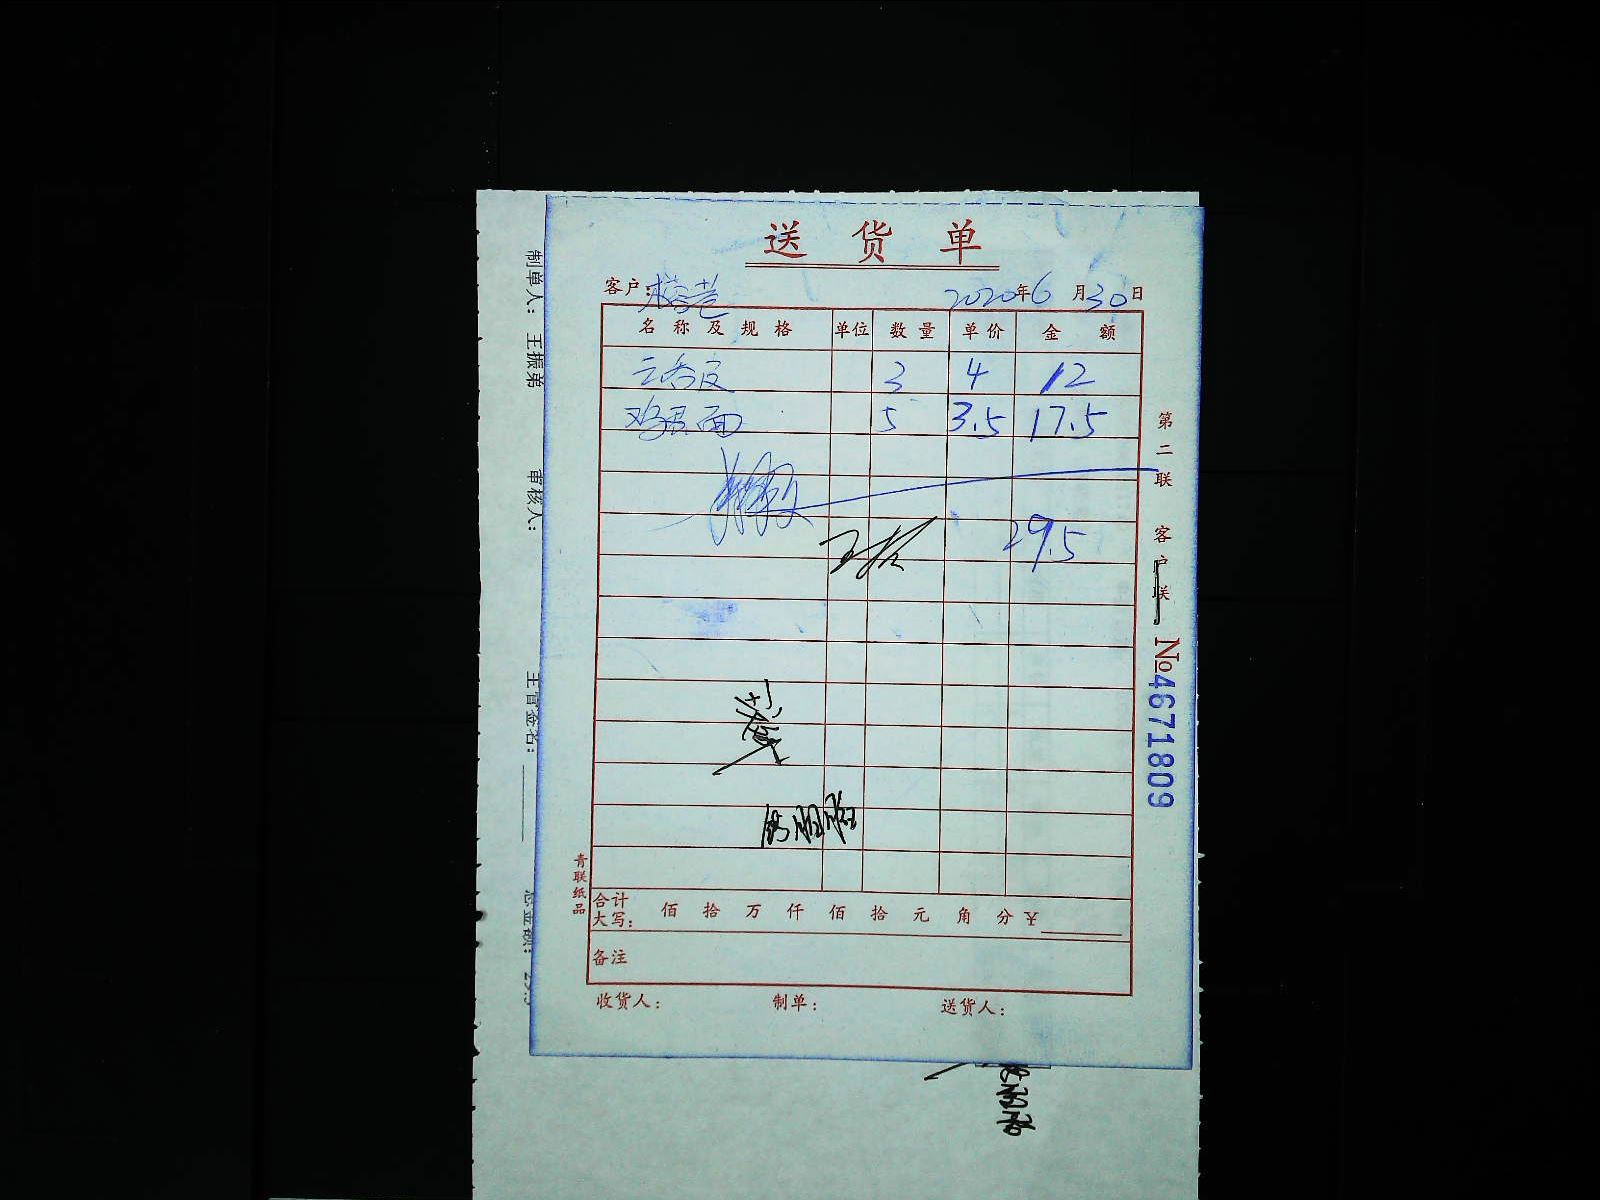 送货单
客户：
2020年6月30日
名称及规格 单位 数量 单价 金额
云吞皮 3 4 12
鸡蛋面 5 3.5 17.5
29.5
合计大写： 佰 拾 万 仟 佰 拾 元 角 分 ¥
备注
收货人： 制单： 送货人：
青联纸品
第二联 客户联 №4671809
制单人： 王振弟 审核人： 主管签名： 总金额：